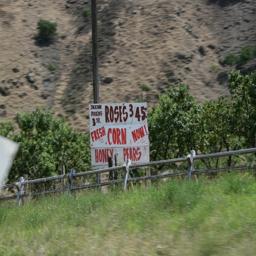 ROSES 3.45
FRESH CORN NOW!
HONEY PEARS